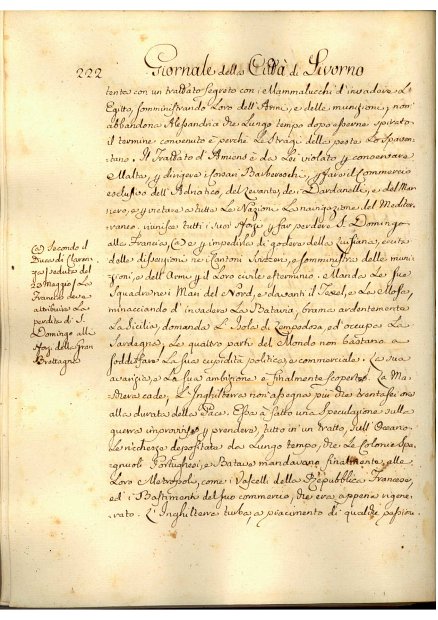 222 Giornale della Città di Livorno
tenta con un trattato segreto con i Mammalucchi d'invadere L'
Egitto, somministrando Loro dell'Armi, e delle munizioni; non
abbandona Alessandria che Lungo tempo dopo esserne spirato
il termine convenuto e perchè Le stragi della peste Lo spaven-
tano. Il Trattato d'Amiens è da Lei violato p conservare
Malta, p dirigere i Corsari Barbereschi, p fare il Commercio
esclusivo dell'Adriatico, del Levante, dei Dardanelli, e del Mar
nero, e p vietare a tutte Le Nazioni La navigazione del Mediter-
raneo. riunisce tutti i suoi sforzi p far perdere S. Domingo
alla Francia, (a) e p impedirle di godere della Luisiana, eccita
delle dissenzioni nei Cantoni Svizzeri, e somministra delle muni-
zioni, e dell'Armi p il Loro civile esterminio. Manda Le sue
Squadre nei Mari del Nord, e davanti il Texel, e La Mosa,
minacciando d'invadere La Batavia, brama ardentemente
La Sicilia, domanda L'Isola di Lampedosa, ed occupa La
Sardegna. Le quattro parti del Mondo non bastano a
soddisfare La sua cupidità politica, e commerciale. La sua
avarizia, e La sua ambizione è finalmente scoperta. La Ma-
schera cade; L'Inghilterra non assegna più che trentasei ore
alla durata della Pace. Essa à fatto una speculazione sulla
guerra improvvisa p prendere, tutto in un tratto, sull'Oceano
Le ricchezze depositate da Lungo tempo, che Le Colonie Spa-
gnuole Portughesi, e Batave mandavano finalmente alle
Loro Metropoli, come i Vascelli della Repubblica Francese,
ed i Bastimenti del suo commercio, che era appena rigene-
rato. L'Inghilterra turba, a piacimento di qualche passione
(a) Secondo il
Duca di Claren-
za, seduta del
20 maggio, La
Francia deve
attribuire La
perdita di S.
Domingo alle
forze della Gran
Brettagna